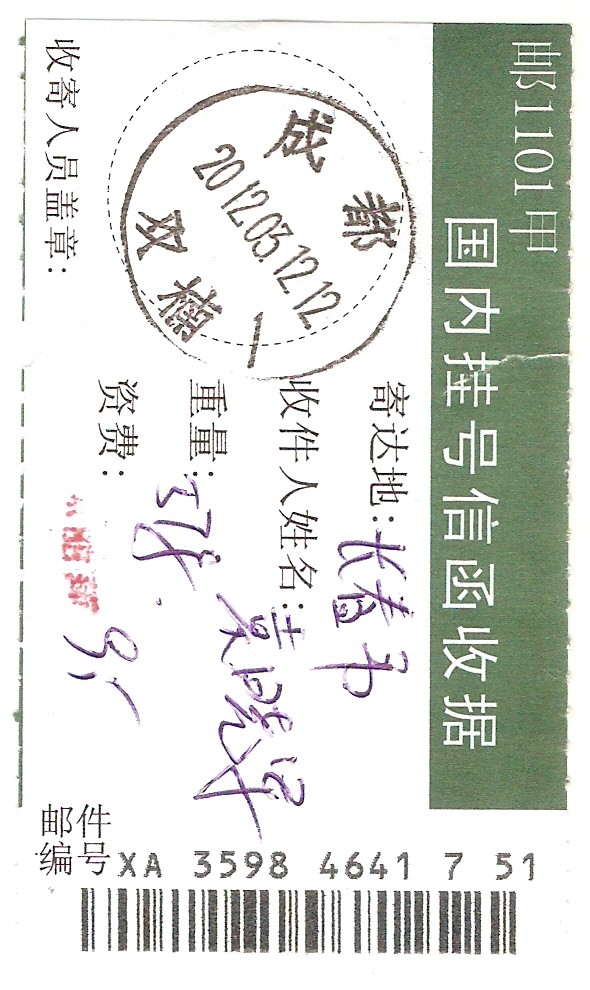 邮1101甲
国内挂号信函收据
寄达地：长春市
收件人姓名：
重量：
资费：
收寄人员盖章：
成都
2012.03.12.12
双楠
1
邮件
编号
XA 3598 4641 7 51